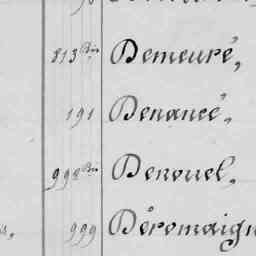 813 Bis Demeuré,
191 Denancé,
998 Bis Denouel,
999 Déromaign